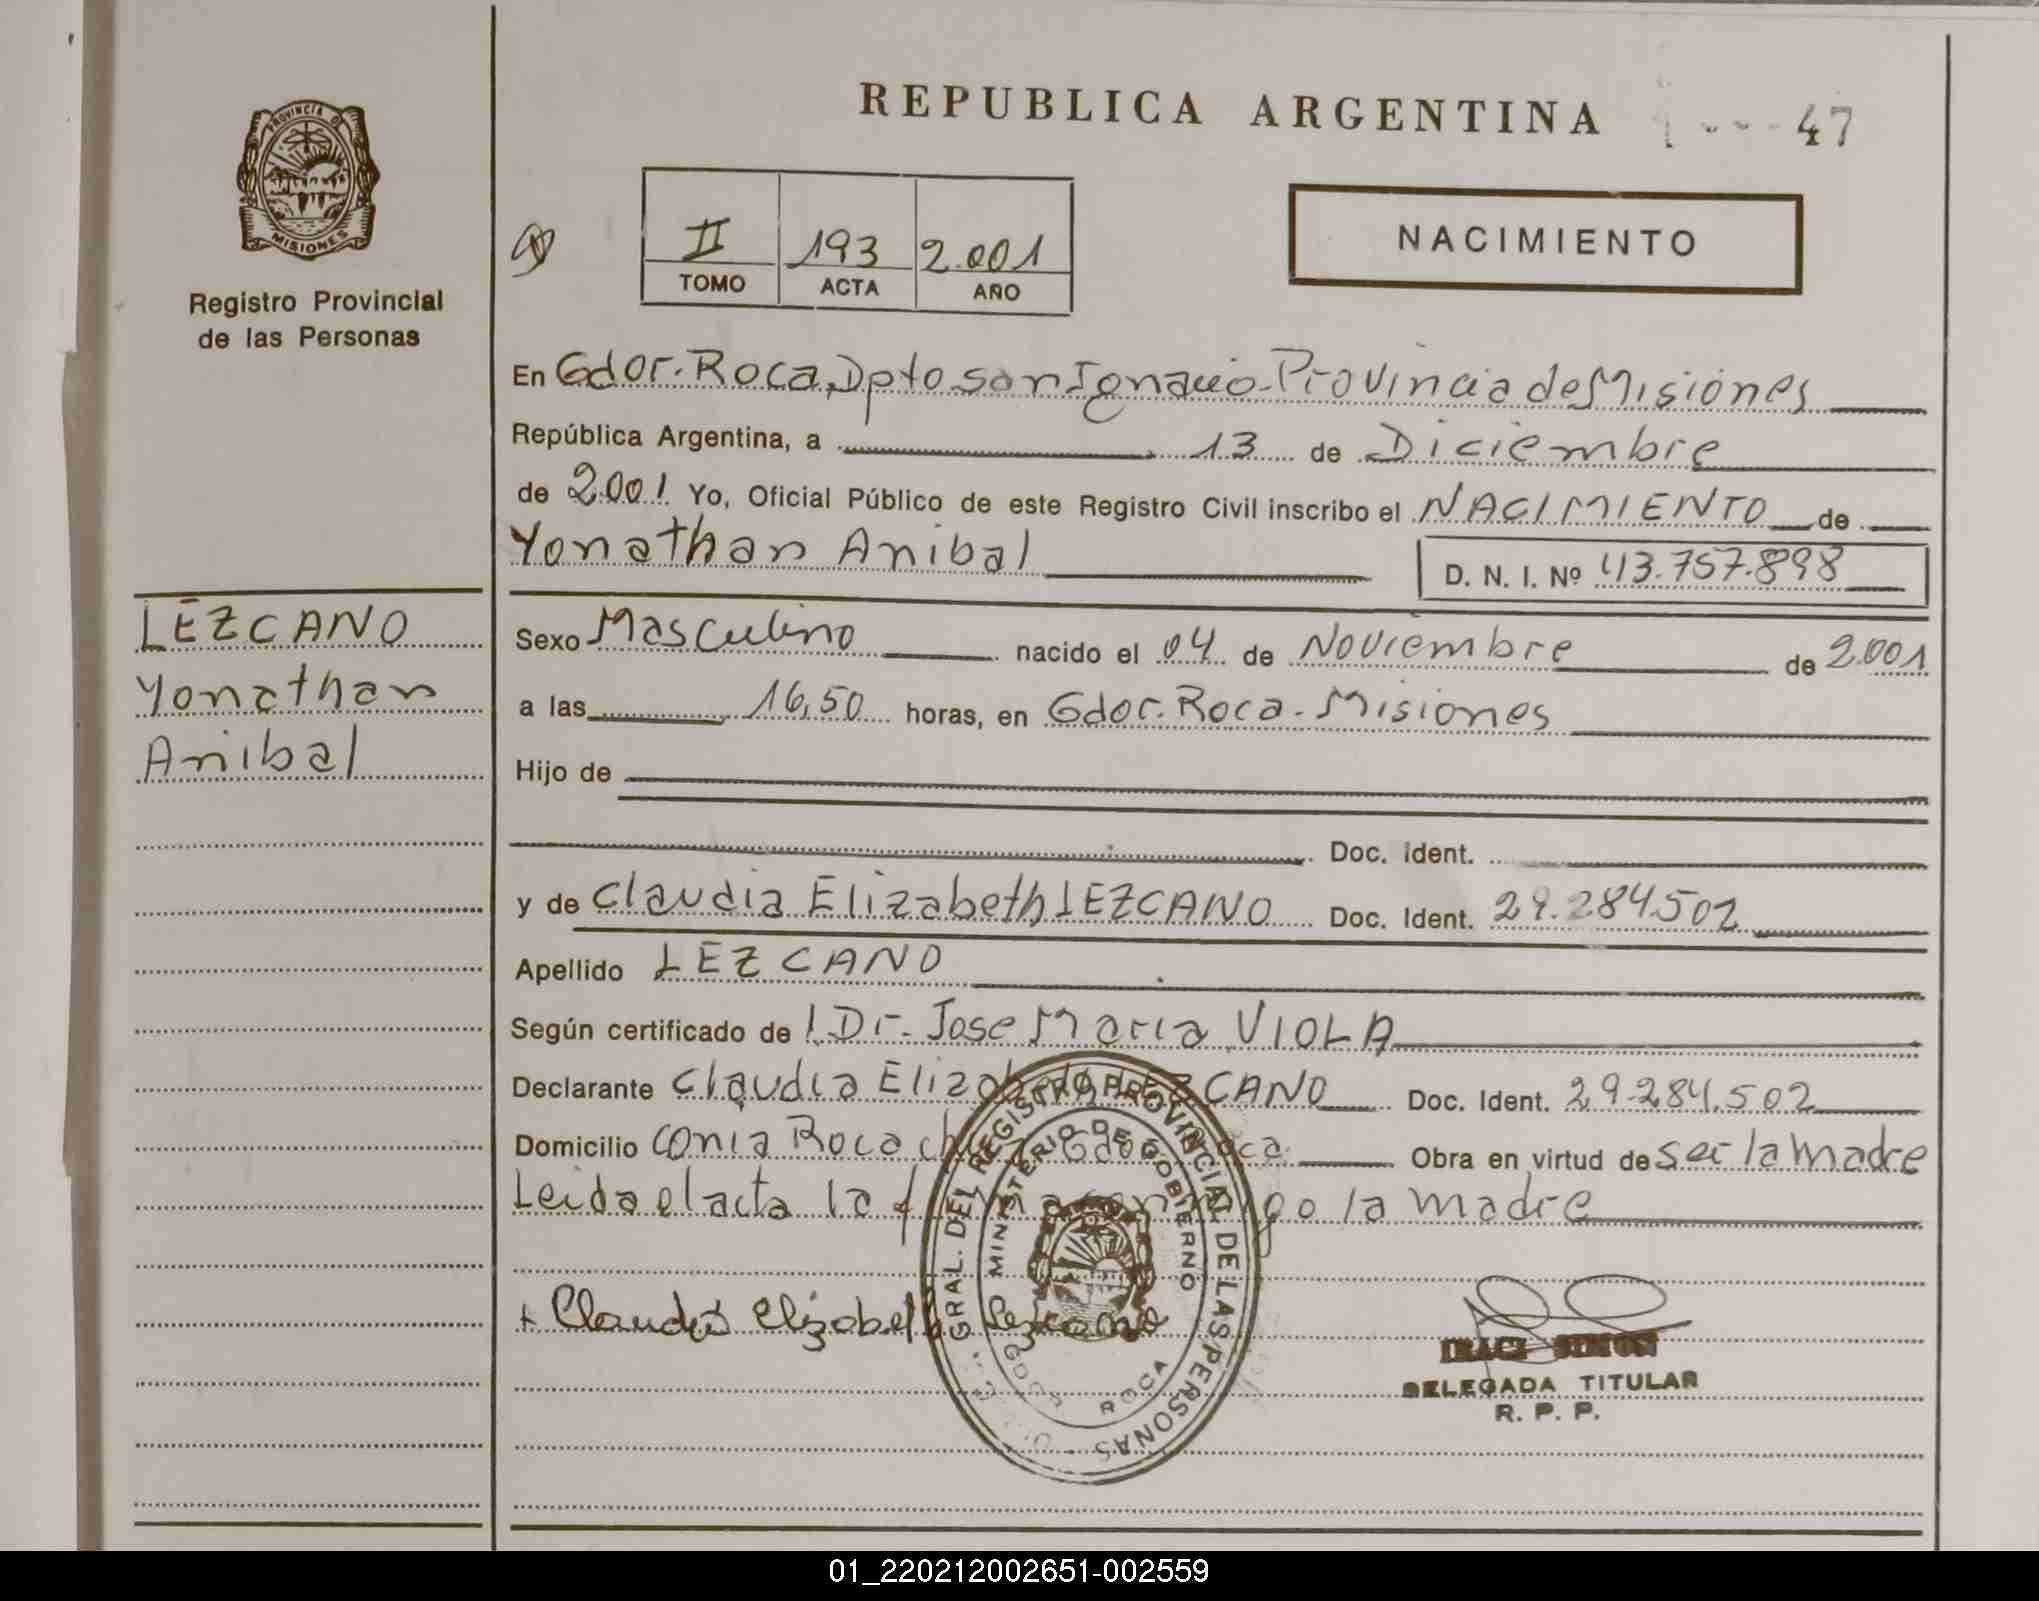 REPUBLICA ARGENTINA
47
PROVINCIA DE
MISIONES
Registro Provincial
de las Personas
II 193 2.001
TOMO ACTA AÑO
NACIMIENTO
En Gdor. Roca Dpto san Ignacio-Provincia de Misiones
República Argentina, a 13 de Diciembre
de 2.001 Yo, Oficial Público de este Registro Civil inscribo el NACIMIENTO de
Yonathan Anibal
D. N. I. Nº 43.757.898
LEZCANO
Yonathan
Anibal
Sexo Masculino nacido el 04 de Noviembre de 2.001
a las 16,50 horas, en Gdor. Roca - Misiones
Hijo de
Doc. Ident.
y de Claudia Elizabeth LEZCANO Doc. Ident. 29.284.502
Apellido LEZCANO
Según certificado de l Dr. Jose Maria VIOLA
Declarante Claudia Elizabeth LEZCANO Doc. Ident. 29.284.502
Domicilio Conia Roca Gdor Roca Obra en virtud de ser la madre
Leida el acta la la madre
+ Claudia Elizabeth Lezcano
GRAL. DEL REGISTRO PROVINCIAL DE LAS PERSONAS
MINISTERIO DE GOBIERNO
GDOR ROCA
DELEGADA TITULAR
R. P. P.
01_220212002651-002559